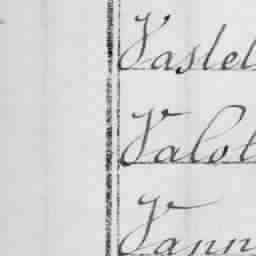 Vaslet
Valot
Vann